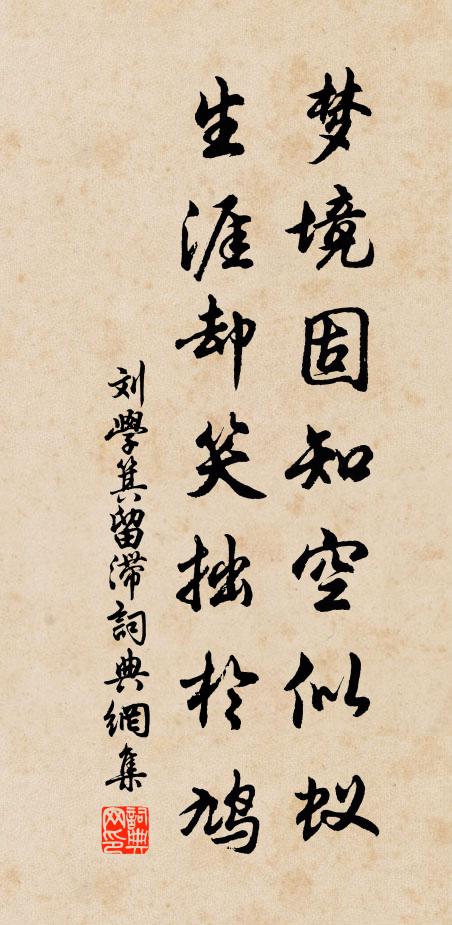 梦境固知空似蚁
生涯却笑拙於鸠
刘學箕留滞詞典網集
詞典网印